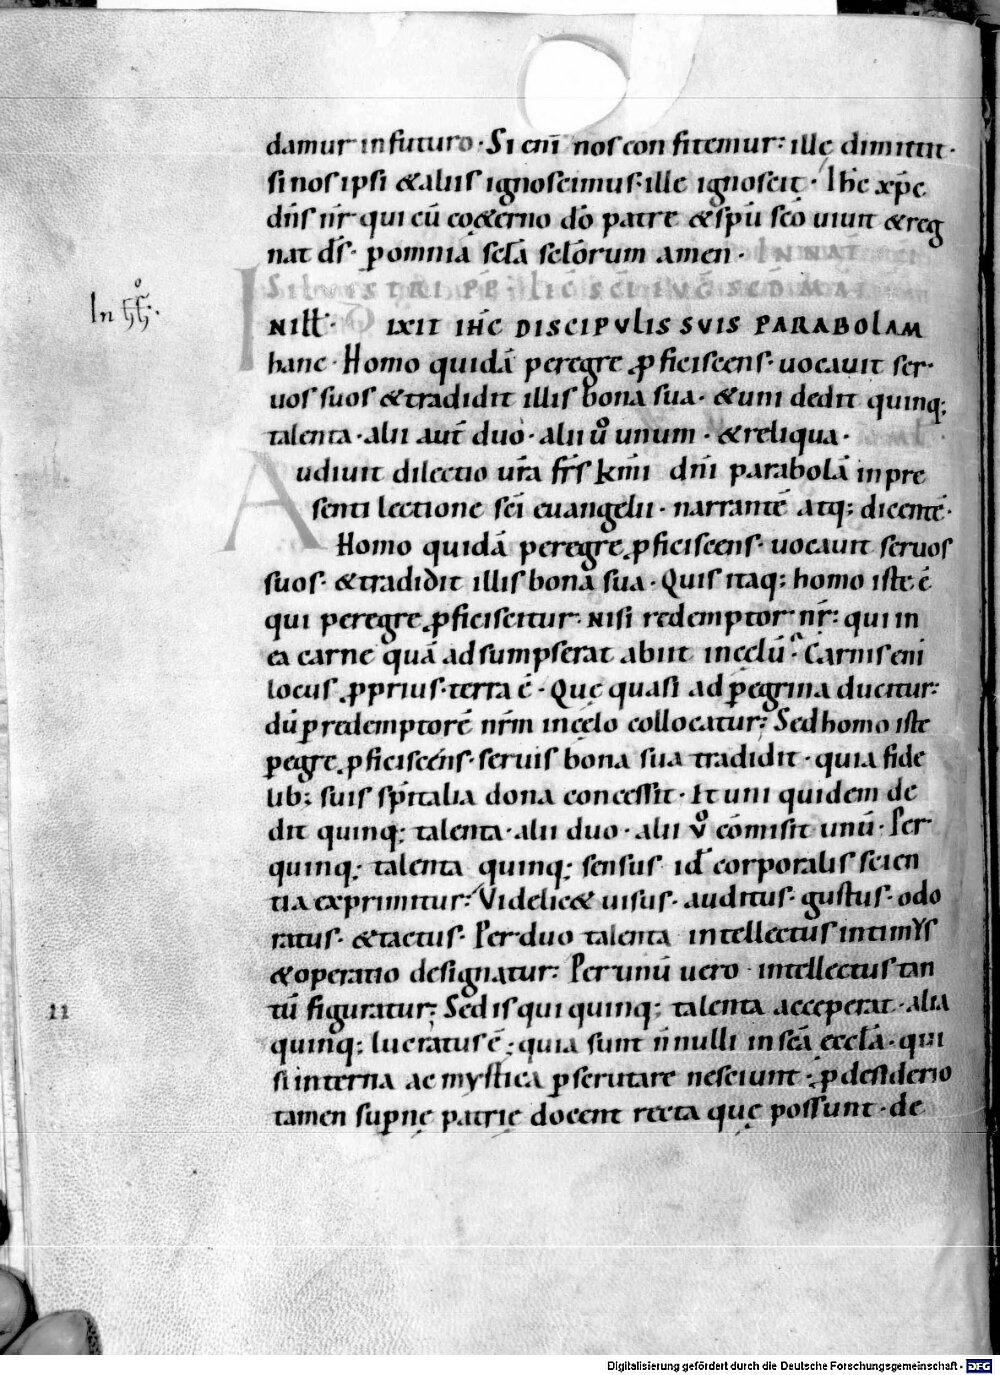 damur in futuro · Si enī nos confitemur: ille dimittit ·
si nos ipsi & aliis ignoscimus · ille ignoscit · Ih̄c xp̄c
dn̄s nr̄ qui cū coę&erno dō patre & sp̄u sc̄o uiuit & reg
nat d̄s · p omnia sc̄la sc̄lōrum amen · IN NAT SC̄I
SILVESTRI PP̄ · LEC̄ SC̄I EVḠ SCD̄ MAT
In o᷒
IXIT IH̄C DISCIPVLIS SVIS PARABOLAM
hanc · Homo quidā peregre ꝓficiscens · uocauit ser·
uos suos & tradidit illis bona sua · & uni dedit quinq;
talenta · alii aut̄ duo · alii ů unum · & reliqua ·
Audiuit dilectio ur̄a fr̄s kmī dn̄i parabolā in pre
senti lectione sc̄i euangelii · narrantē atq; dicentē ·
Homo quidā peregre ꝓficiscens · uocauit seruos
suos · & tradidit illis bona sua · Quis itaq; homo iste ē
qui peregre ꝓficiscitur · nisi redemptor nr̄: qui in
ea carne quā adsumpserat abiit in cęlū: Carnis eni
locus ꝓprius · terra ē · Quę quasi ad ꝑegrina ducitur:
dū ꝑ redemptorē nr̄m in cęlo collocatur; Sed homo iste
ꝑegre ꝓficiscens · seruis bona sua tradidit · quia fide
lib; suis sp̄italia dona concessit · Et uni quidem de
dit quinq; talenta · alii duo · alii v̊ cōmisit unū · Per
quinq; talenta quinq; sensus id corporalis scien
tia exprimitur: Videlic& uisus · auditus · gustus · odo
ratus · & tactus · Per duo talenta intellectus intimus
& operatio designatur: Per unū uero intellectus tan
tū figuratur; Sed is qui quinq; talenta acceperat · alia
11
quinq; lucratus ē; quia sunt n̄nulli in sc̄ā eccl̄ā · qui
si interna ac mystica ꝑscrutare nesciunt · ꝓ desiderio
tamen suꝑnę patrię docent recta quę possunt · de
Digitalisierung gefördert durch die Deutsche Forschungsgemeinschaft - DFG